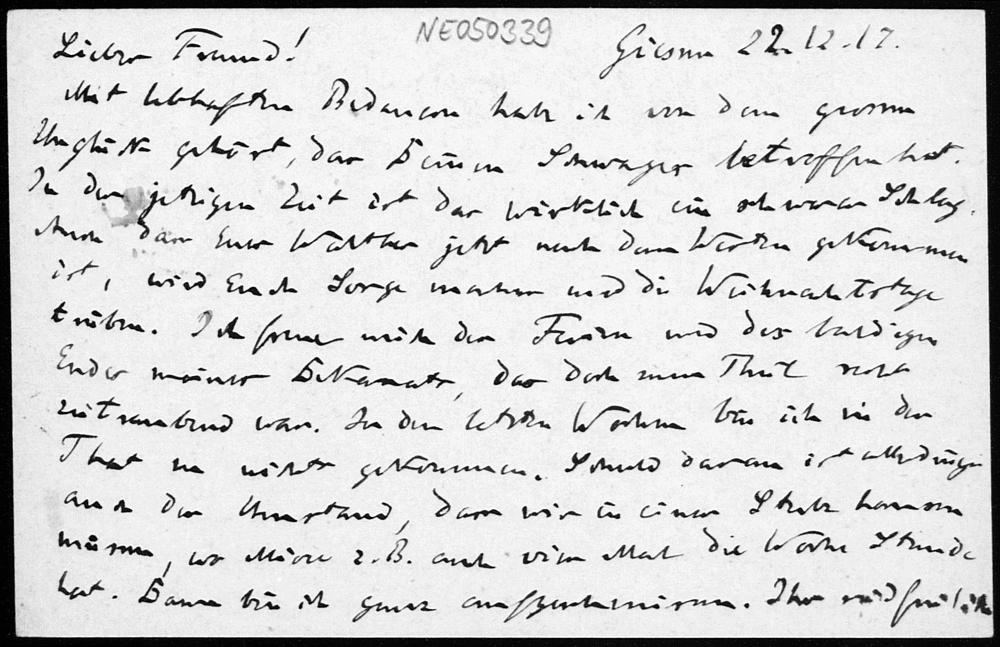 NE050339
Lieber Freund! Giessen 22.12.17.
Mit lebhaftem Bedauern habe ich von dem grossen
Unglück gehört, das Deinen Schwager betroffen hat.
In der jetzigen Zeit ist das wirklich ein schwerer Schlag.
Auch dass Euer Walther jetzt nach dem Westen gekommen
ist, wird Euch Sorge machen und die Weihnachtstage
trüben. Ich freue mich der Ferien und des baldigen
Endes meines Dekanats, das doch zum Theil recht
zeitraubend war. In den letzten Wochen bin ich in der
That zu nichts gekommen. Schuld daran ist allerdings
auch der Umstand, dass wir in einer Stube hausen
müssen, wo z.B. auch vier Mal die Woche Stunde
hat. Dann bin ich ganz aufgeschmissen. Ihr seid